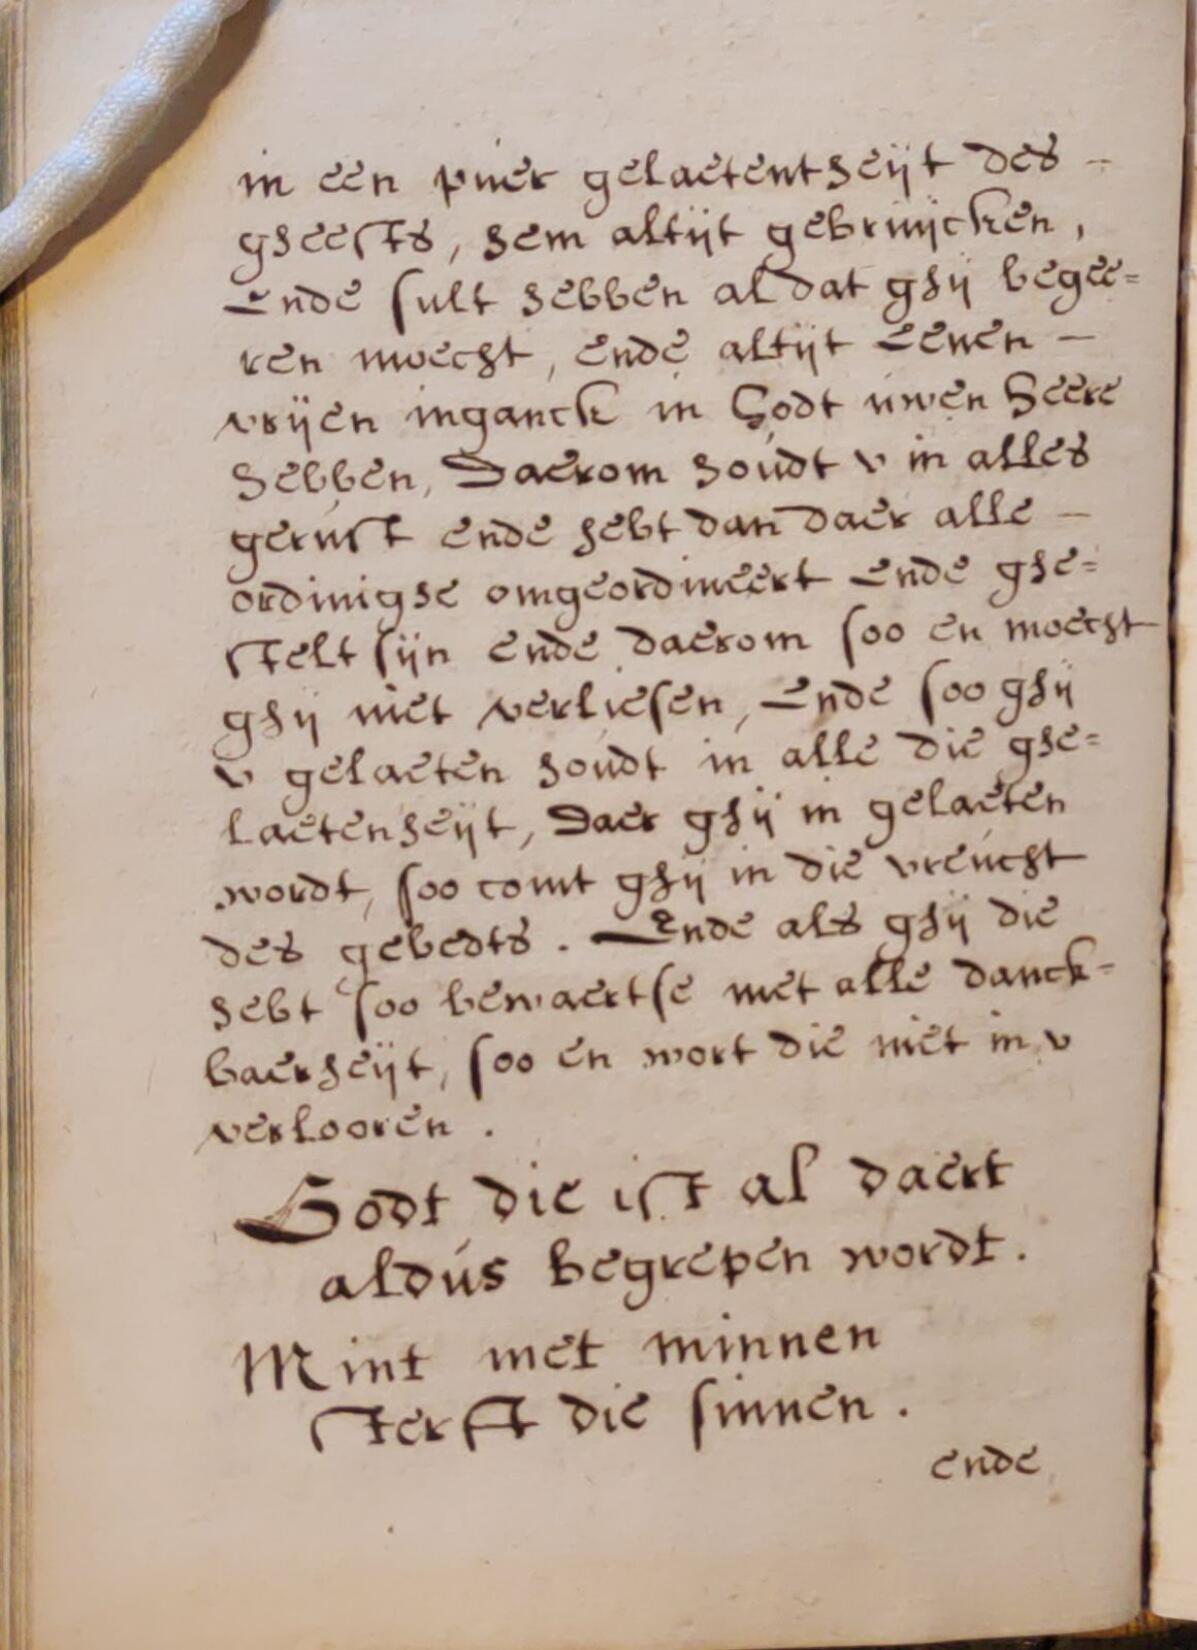 in een puer gelaetentheijt des –
gheests, hem altijt gebruijcken,
Ende sult hebben al dat ghij begee=
ren moecht, ende altijt Eenen –
vrijen inganck in Godt uwen Heere
Hebben, Daerom houdt v in alles
gerust ende hebt dan daer alle –
ordinighe omgeordineert Ende ghe=
stelt sijn ende daerom soo en moecht
ghij niet verliesen, Ende soo ghij
v gelaeten houdt in alle die ghe=
laetenheijt, Daer ghij in gelaeten
wordt, soo comt ghij in die vreucht
des gebedts. Ende als ghij die
hebt soo bewaertse met alle danck=
baerheijt, soo en wort die niet in v
verlooren.
Godt die ist al daert
aldus begrepen wordt.
Mint met minnen
sterft die sinnen.
ende